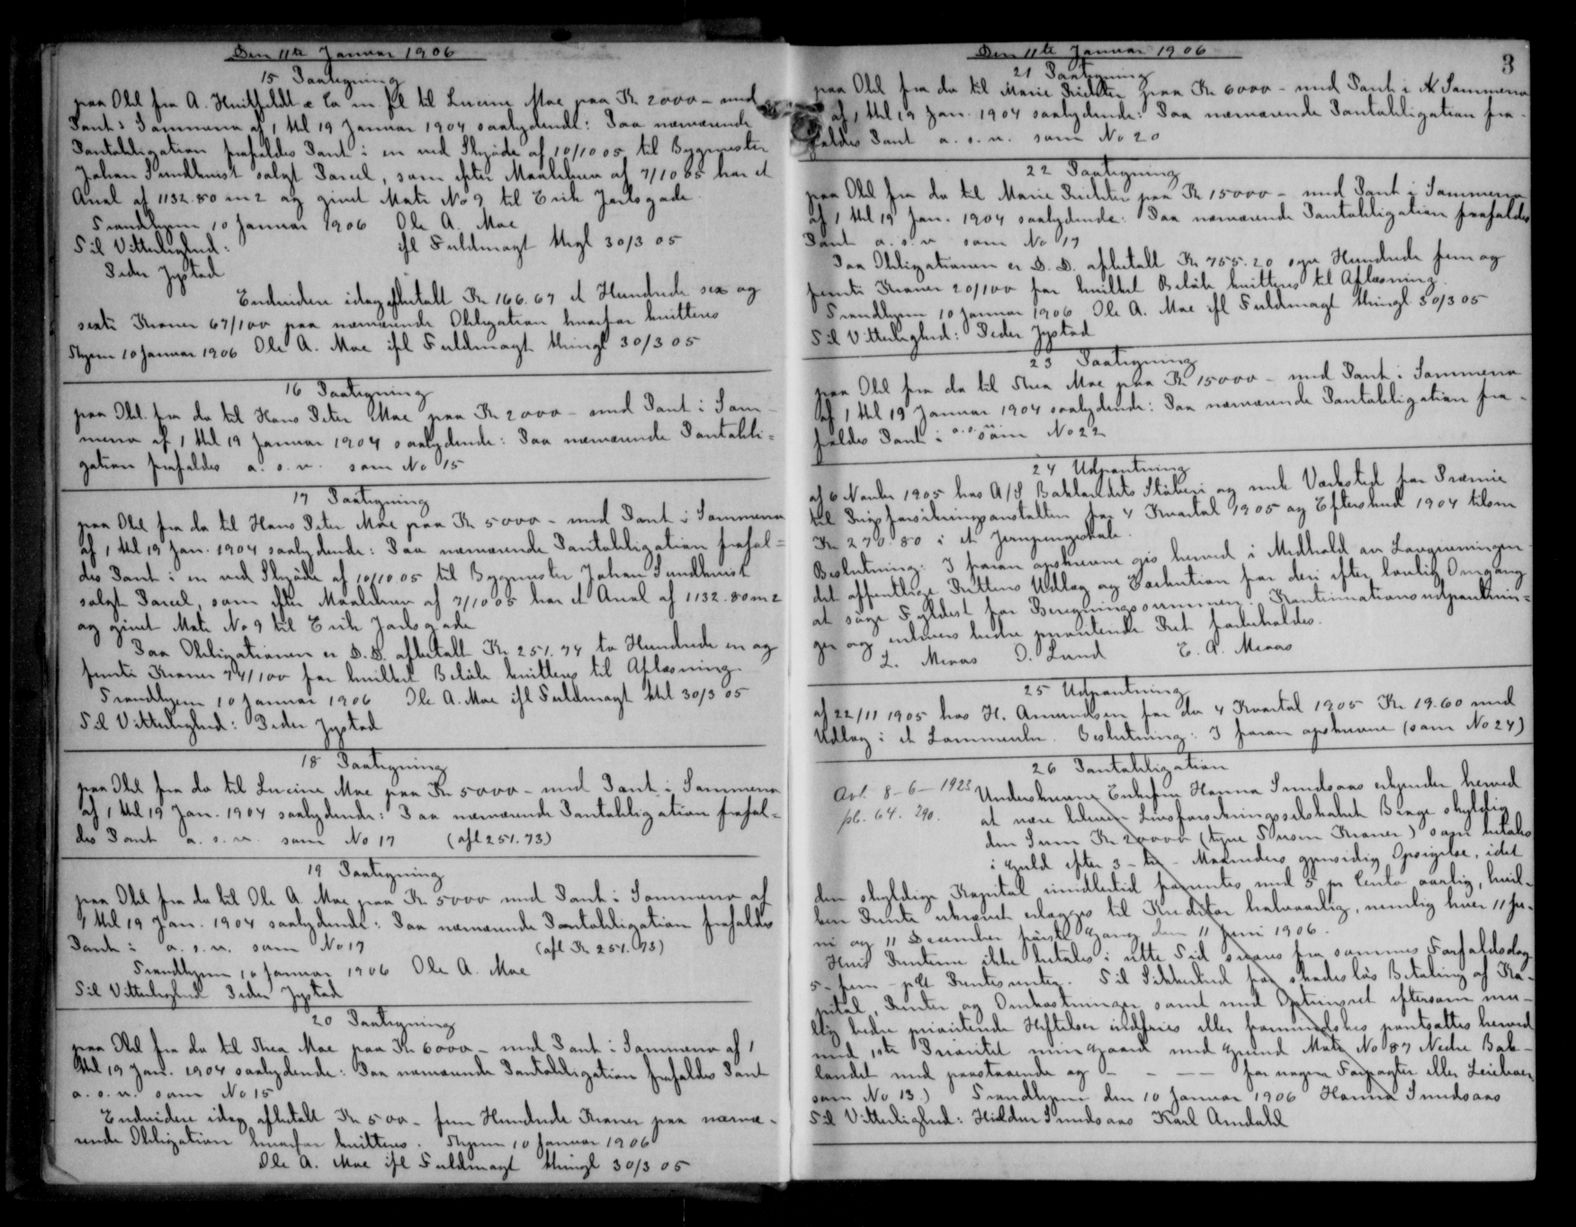 Den 11te Januar 1906
15 Paategning
paa Obl fra A. Huitfeldt & Co m fl til Lucine Moe paa Kr 2000 – med
Pant i Sommerro af 1 thl 19 Januar 1904 saalydende: Paa nærværende
Pantobligation frafaldes Pant i en ved Skjøde af 10/10 05 til Bygmester
Johan Sundkvist solgt Parcel, som efter Maalebrev af 7/10 05 har et
Areal af 1132.80 m2 og givet Matr No 9 til Erik Jarlsgade.
Trondhjem 10 Januar 1906 Ole A. Moe
Til Vitterlighed: ifl Fuldmagt thgl 30/3 05
Peder Jystad
Endvidere idag afbetalt Kr 166.67 et Hundrede sex og
sexti Kroner 67/100 paa nærværende Obligation hvorfor kvitteres
Thjem 10 Januar 1906 Ole A. Moe ifl Fuldmagt thingl 30/3 05
16 Paategning
paa Obl. fra do til Hans Peter Moe paa Kr 2000 – med Pant i Som-
merro af 1 thl 19 Januar 1904 saalydende: Paa nærværende Pantobli=
gation frafaldes a. s. v. som No 15
17 Paategning
paa Obl fra do til Hans Peter Moe paa Kr 5000 – med Pant i Sommerro
af 1 thl 19 Jan. 1904 saalydende: Paa nærværende Pantobligation frafal=
des Pant i en ved Skjøde af 10/10 05 til Bygmester Johan Sundkvist
solgt Parcel, som efter Maalebrev af 7/10 05 har et Areal af 1132.80 m2
og givet Matr No 9 til Erik Jarlsgade
Paa Obligationen er D.D. afbetalt Kr 251.74 to Hundrede en og
femti Kroner 74/100 for hvilket Beløb kvitteres til Aflæsning.
Trondhjem 10 Januar 1906 Ole A. Moe ifl Fuldmagt thl 30/3 05
Til Vitterlighed: Peder Jystad
18 Paategning
paa Obl fra do til Lucine Moe paa Kr 5000 – med Pant i Sommerro
af 1 thl 19 Jan. 1904 saalydende: Paa nærværende Pantobligation frafal=
des Pant a. s. v. som No 17 (afl 251.73)
19 Paategning
paa Obl fra do til Ole A. Moe paa Kr 5000 med Pant i Sommerro af
1 thl 19 Jan. 1904 saalydende: Paa nærværende Pantobligation frafaldes
Pant i a. s. v. som No 17 (afl Kr 251.73)
Trondhjem 10 Januar 1906 Ole A. Moe
Til Vitterlighed Peder Jystad
20 Paategning
paa Obl fra do til Thea Moe paa Kr 6000 – med Pant i Sommerro af 1
thl 19 Jan. 1904 saalydende: Paa nærværende Pantobligation frafaldes Pant
a. s. v. som No 15
Endvidere idag afbetalt Kr 500 – fem Hundrede Kroner paa nærvæ-
rende Obligation hvorfor kvitteres. Thjem 10 Januar 1906
Ole A. Moe ifl Fuldmagt thingl 30/3 05
Den 11te Januar 1906
3
21 Paategning
paa Obl fra do til Marie Richter paa Kr 6000 – med Pant i Sommerro
af 1 thl 19 Jan. 1904 saalydende: Paa nærværende Pantobligation fra-
faldes Pant a. s. v. som No 20
22 Paategning
paa Obl fra do til Marie Richter paa Kr 15000 – med Pant i Sommerro
af 1 thl 19 Jan. 1904 saalydende: Paa nærværende Pantobligation frafaldes
Pant a. s. v. som No 17
Paa Obligationen er D. D. afbetalt Kr 755.20 syv Hundrede fem og
femti Kroner 20/100 for hvilket Beløb kvitteres til Aflæsning.
Trondhjem 10 Januar 1906 Ole A. Moe ifl Fuldmagt thingl 30/3 05
Til Vitterlighed: Peder Jystad
23 Paategning
paa Obl fra do til Thea Moe paa Kr 15000 – med Pant i Sommerro
af 1 thl 19 Januar 1904 saalydende: Paa nærværende Pantobligation fra-
faldes Pant i a. s. v. som No 22
24 Udpantning
af 6 Novbr 1905 hos A/S Baklandets Støberi og mek Værksted for Præmie
til Rigsforsikringsanstalten for 4 Kvartal 1905 og Efterskud 1904 tilsm
Kr 270.80 i et Jernpengeskab.
Beslutning: I foran opskrevne gjøs herved i Medhold av Lovgivningen
det offentlige Rettens Udlæg og Exekution for deri efter lovlig Omgang
at søge Fyldest for Beregningssummen. Kontinuationsudpantnin=
ger og enhvers bedre prioriterede Ret forbeholdes.
L. Meraas O. Lund E. A. Meraas
25 Udpantning
af 22/11 1905 hos H. Amundsen for do 4 Kvartal 1905 Kr 19.60 med
Udlæg i et Lommeuhr. Beslutning: I foran opskrevne (som No 24)
26 Pantobligation
Avl. 8-6-1923
pb. 64. 290.
Underskrevne Enkefru Hanna Sundsaas erkjender herved
at være bleven Livsforsikringsselskabet Brage skyldig
den Sum Kr 20000 (tyve Tusen Kroner) som betales
i Guld efter 3 – tre – Maaneders gjensidig Opsigelse, idet
den skyldige Kapital imidlertid forrentes med 5 pr Cento aarlig, hvil-
ken Rente ukrævet erlægges til Kreditor halvaarlig, nemlig hver 11 Ju-
ni og 11 December første Gang den 11 Juni 1906.
Hvis Renterne ikke betales i rette Tid svares fra sammes Forfaldsdag
5 – fem – pCt Rentesrenter. Til Sikkerhed for skadesløs Betaling af Ka-
pital, Renter og Omkostninger samt med Optrinsret eftersom mu-
lig bedre prioriterede Heftelser indfries eller formindskes pantsættes herved
med 1ste Prioritet min Gaard med Grund Matr No 87 Nedre Bak-
landet med paastaaende og – – — for nogen Forpagter eller Leieboer
som No 13) Trondhjem den 10 Januar 1906 Hanna Sundsaas
Til Vitterlighed: Hildur Sundsaas Karl Arndahl